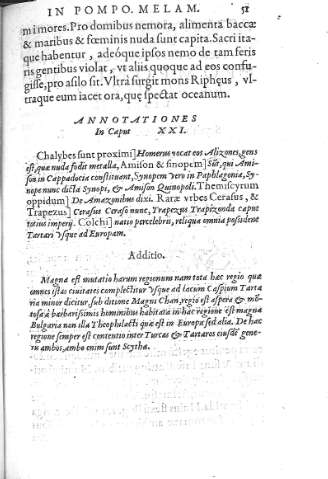 IN POMPO. MELAM. 51
mi mores. Pro domibus nemora, alimenta baccæ
& maribus & fœminis nuda sunt capita. Sacri ita-
que habentur, adeóque ipsos nemo de tam feris
ris gentibus violat, vt aliis quoque ad eos confu-
gisse, pro asilo sit. Vltrà surgit mons Riphęus, vl-
traque eum iacet ora, quę spectat oceanum.
ANNOTATIONES
In Caput XXI.
Chalybes sunt proximi] Homerus vocat eos Alizones, gens
est, quæ nuda fodit metalla, Amison & sinopem] Sũt, qui Ami-
son in Cappadocia constituant, Synopem vero in Paphlagonia, Sy-
nope nunc dicta Synopi, & Amison Quinopoli. Themiscyrum
oppidum] De Amazonibus dixi. Raræ vrbes Cerasus, &
Trapezus] Cerasus Ceraso nunc, Trapezus Trapezonda caput
totius imperij. Colchi] natio percelebris, reliqua omnia possident
Tartari vsque ad Europam.
Additio.
Magna est mutatio harum regionum nam tota hæc regio quæ
omnes istas ciuitates complectitur vsque ad lacum Caspium Tarta
ria minor dicitur, sub ditione Magni Chan, regio est aspera & mõ-
tosa à barbarissimis hominibus habitata in hac regione est magna
Bulgaria non illa Theophilacti quæ est in Europa sed alia. De hac
regione semper est contentio inter Turcas & Tartaros eiusdẽ gene-
ris ambos, ambo enim sunt Scythæ.